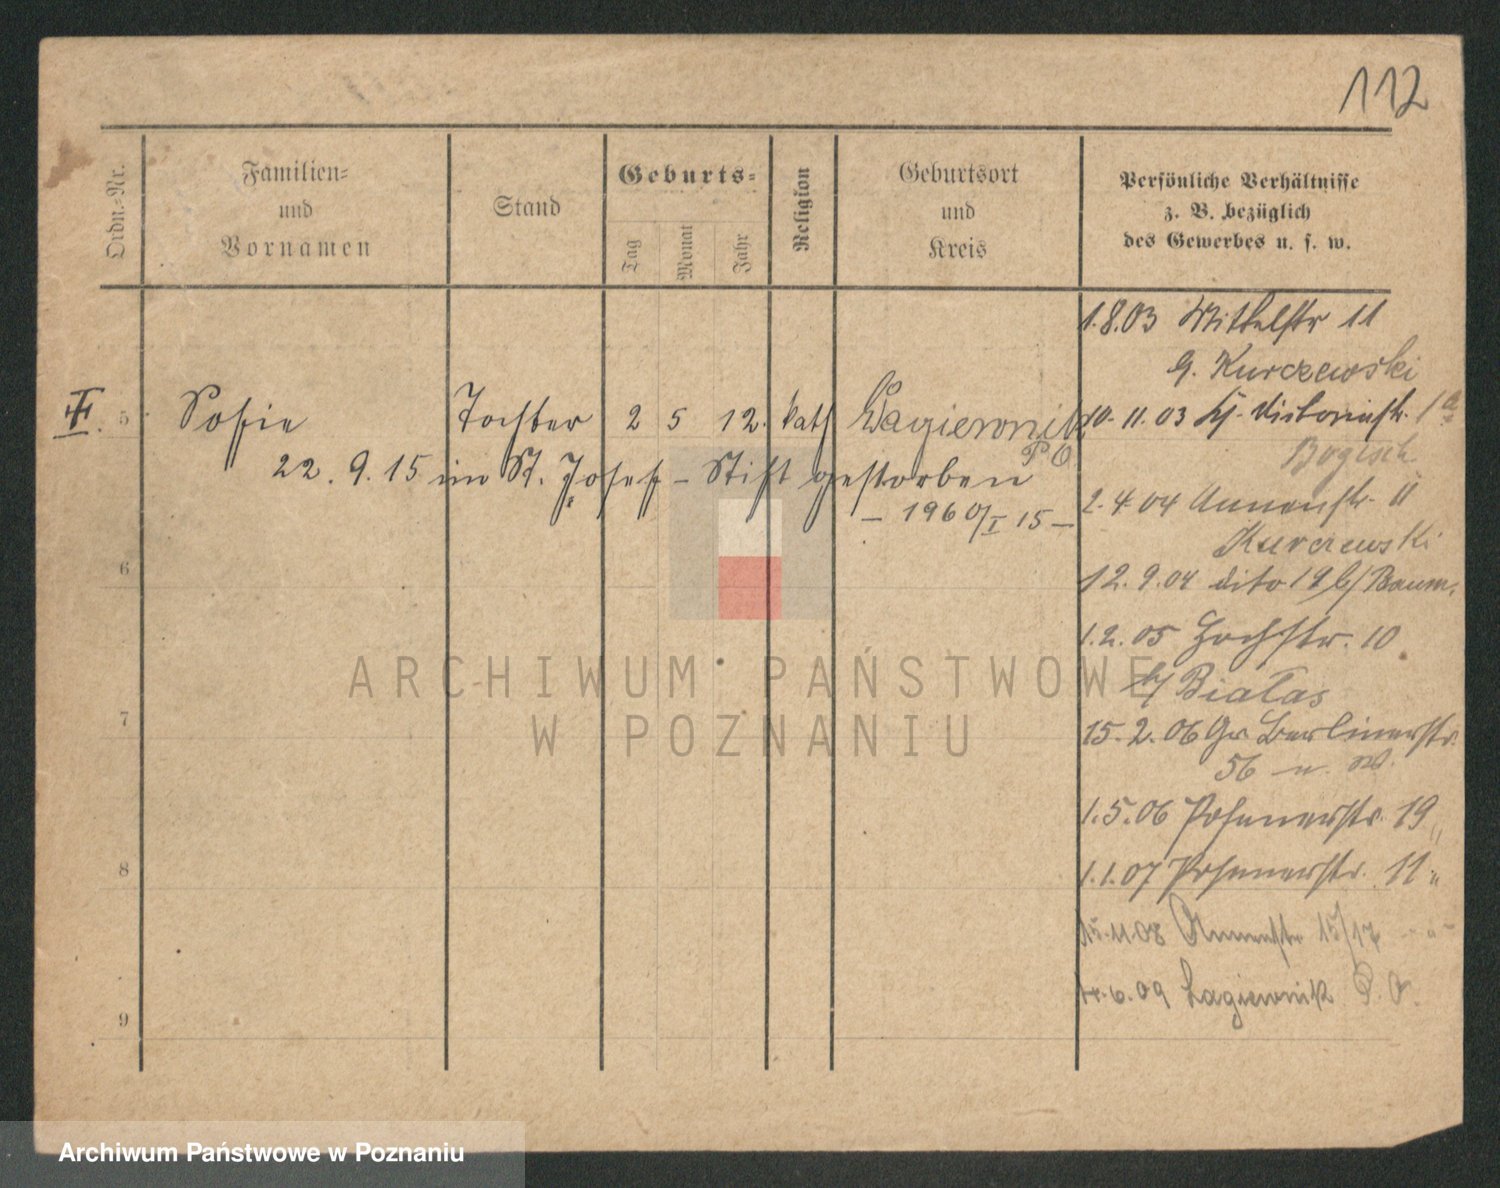 112
Ordn.-Nr.
Familien-
und
Vornamen
Stand
Geburts-
Tag
Monat
Jahr
Religion
Geburtsort
und
Kreis
Persönliche Verhältnisse
z. B. bezüglich
des Gewerbes u. s. w.
5
Sofie
Tochter
2
5
12.
kath
Lagiewnik
P O
22. 9. 15 im St. Josef-Stift gestorben
- 1960/I 15 -
6
7
8
9
1.8.03 Mittelstr 11
Kurczewski
10.11.03 Viktoriastr.
2.4.04 Annenstr. 11
Kurczewski
12.9.04 dito 19 b/
1.2.05 Hochstr. 10
b/ Białas
15.2.06 Gr. Berlinerstr.
56
1.5.06 Posenerstr. 19
1.1.07 Posenerstr. 11
15.11.08 Annenstr 15/17
6.09 Lagiewnik P.O.
ARCHIWUM PAŃSTWOWE
W POZNANIU
Archiwum Państwowe w Poznaniu